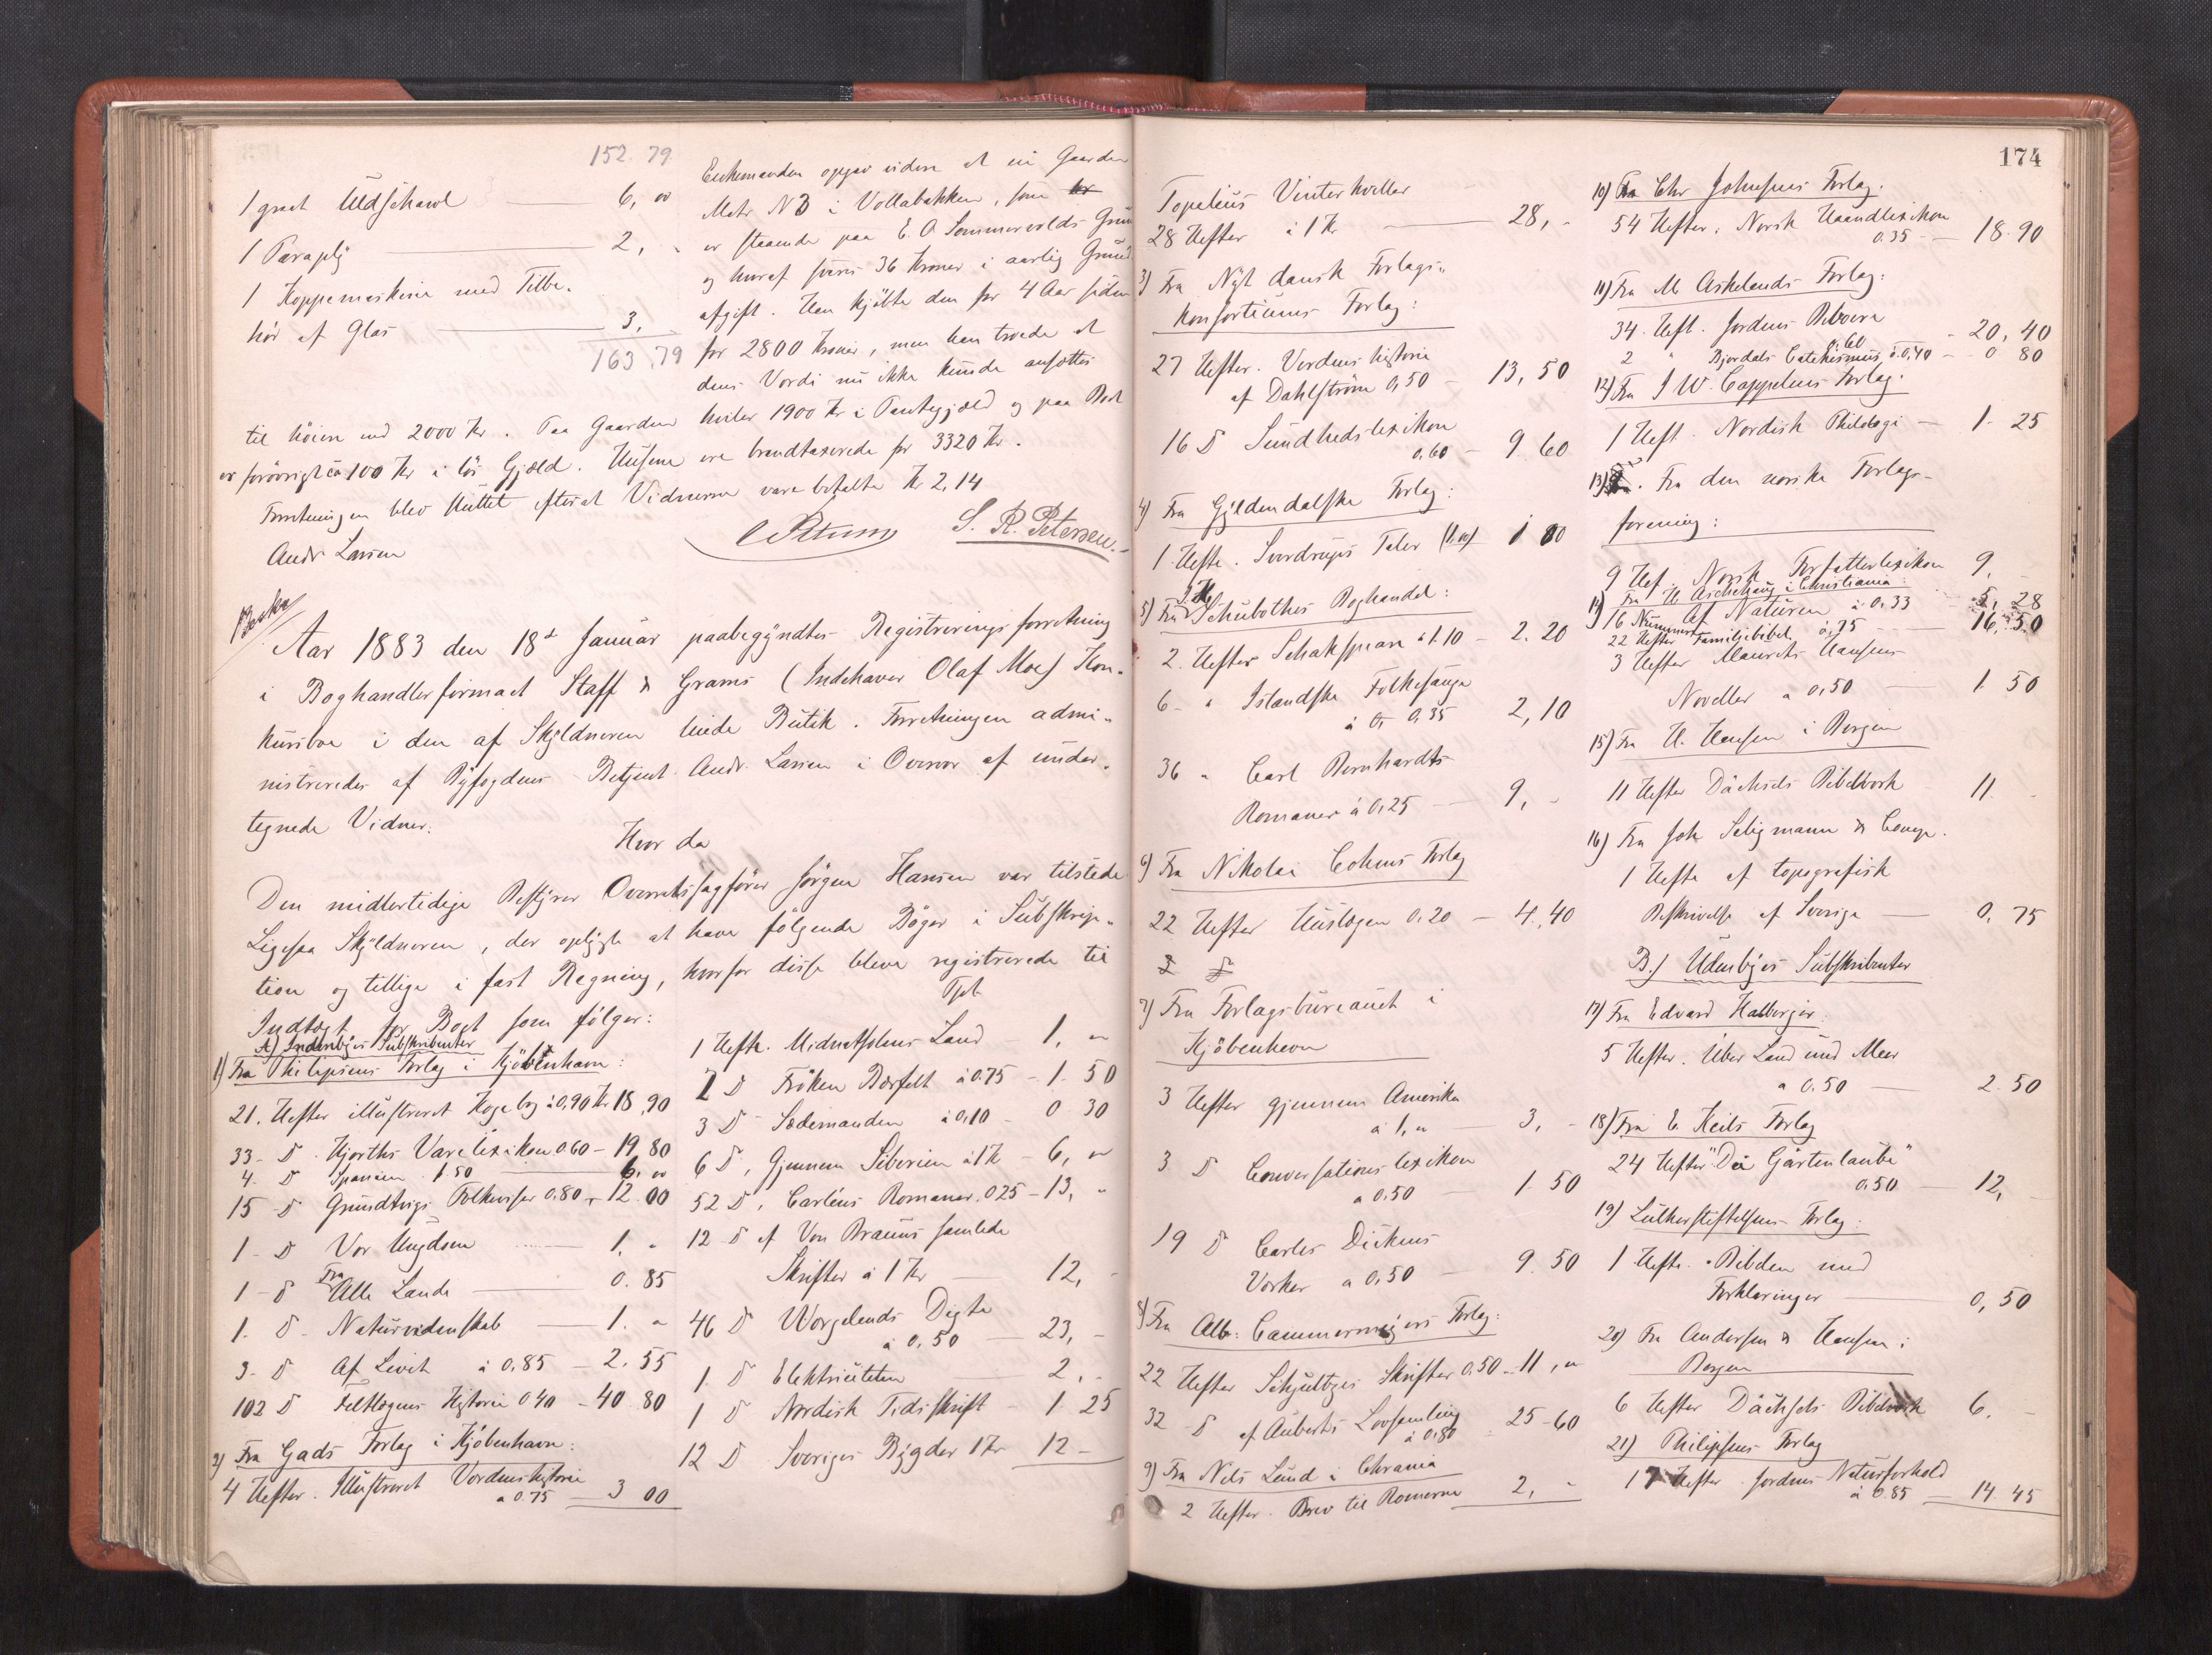 152.79
1 graat Uldschawl 6,00
1 Paraply 2, "
1 Koppemaskine med Tilbe-
hör af Glas 3,
163.79
Enkemanden opgav videre at eie Gaarden
Matr N 3 i Vollabakken, som
er staaende paa E. A Sommervolds Grund
og hvoraf svares 36 Kroner i aarlig Grund
afgift. Han kjöbte den for 4 Aar siden
for 2800 Kroner, men han troede at
dens Værdi nu ikke kunde ansættes
til höiere end 2000 Kr. Paa Gaarden hviler 1900 Kr i Pantegjæld og paa Boet
er forövrigt ca 100 Kr i lös Gjæld. Husene ere brandtaxerede for 3320 Kr.
Forretningen blev sluttet efterat Vidnerne vare betalte Kr 2,14
Andr Larsen
S. R. Petersen.
Aar 1883 den 18de Januar paabegyndtes Registreringsforretning
i Boghandlerfirmaet Staff & Grams (Indehaver Olaf Moe) Kon-
kursboe i den af Skyldneren leiede Butik. Forretningen admi-
nistreredes af Byfogdens Betjent Andr. Larsen i Overvær af under-
tegnede Vidner.
Hvor da
Den midlertidige Bestyrer Overretssagförer Jörgen Hansen var tilstede
Ligesaa Skyldneren, der oplyste at have fölgende Böger i Subskrip-
tion og tillige i fast Regning, hvorfor disse bleve registrerede til
Indtægt for Boet som fölger:
A) Indenbyes Subskribenter
1) Fra Philipsens Forlag i Kjöbenhavn:
21. Hefter illustreret Kogebog à 0,90 Kr 18,90
33 - D. Hjorths Varelexikon 0.60 - 19,80
4. D Spanien 1.50 6,00
15 - D Grundtvigs Folkeviser 0.80 - 12.00
1 - D Vor Ungdom 1. "
1 - D Fra Alle Lande 0.85
1. D - Naturvidenskab 1. "
3 - D Af Livet à 0,85 - 2.55
102 D Felttogens Historie 0.40 - 40.80
2) Fra Gads Forlag i Kjöbenhavn:
4 Hefter. Illustreret Verdenshistorie
a 0.75 3 00
1 Hefte. Midnatsolens Land 1, "
2 D Fröken Bærfelt à 0.75 - 1. 50
3 D Sædemanden à 0,10 - 0 30
6 D, Gjennem Siberien à 1 Kr - 6, "
52 D, Carléns Romaner. 0.25 - 13, "
12 D af Von Brauns samlede
Skrifter à 1 Kr 12, -
46 D Wergelands Digte
à 0,50 23, -
1. D Elektriciteten 2, -
1 D Nordisk Tidsskrift - 1 25
12 D Sveriges Bygder 1 Kr 12 -
174
Topelius Vinterkvelder
28 Hefter à 1 Kr 28, -
3) Fra Nyt dansk Forlags-
konsortiums Forlag:
27 Hefter. Verdenshistorie
af Dahlström 0,50 - 13,50
16 D Sundhedslexikon
0,60 - 9 60
4) Fra Gyldendalske Forlag:
1 Hefte. Sverdrups Taler (1,00)
5) Fra Schubothes Boghandel:
2. Hefter Schakspeare à 1.10 - 2.20
6 - " Islandske Folkesange
à 0,35 2,10
36 " Carl Bernhardts
Romaner à 0,25 9, -
6) Fra Nikolai Cohens Forlag
22 Hefter Huslægen 0.20 - 4,40
7) Fra Forlagsbureauet i
Kjöbenhavn
3 Hefter gjennem Amerika
à 1, " 3, -
3 D Conversationslexikon
a 0.50 1.50
19 D Carles Dickens
Værker a 0,50 9.50
8) Fra Alb: Cammermeyers Forlag:
22 Hefter Schultzes Skrifter 0,50 - 11, "
32 D af Auberts Lovsamling
à 0.80 25-60
9) Fra Nils Lund i Chrania
2 Hefter. Brev til Romerne 2, -
10) Fra Chr Johnsens Forlag.
54 Hefter, Norsk Haandlexikon
0.35 - 18.90
11) Fra M Askelands Forlag:
34. Heft. Jordens Beboere
à 60 - 20,40
2 " Bjerdals Catekismus, à 0,40 - 0 80
12) Fra J W. Cappelens Forlag.
1 Heft. Nordisk Philologi - 1. 25
13) Fra den norske Forlags-
forening:
9 Hef. Norsk Forfatterlexikon 9, -
14) Fra H Aschehaug i Christiania:
16 Nummere Af Naturen à 0.33 5,28
22 Hefter Familjebibel à ,75 16,50
3 Hefter Maurits Hansens
Noveller a 0,50 1. 50
15) Fra H. Hansen i Bergen
11 Hefter Dächsels Bibelværk 11. -
16) Fra Joh Seligmann & Comp.
1 Hefte af topografisk
Beskrivelse af Sverige 0,75
B.) Udenbyes Subskribenter
17) Fra Edvard Hallberger.
5 Hefter. Uber Land und Meer
a 0.50 2.50
18) Fra E. Keils Forlag
24 Hefter "Die Gartenlaube"
0.50 12,
19) Lutherstiftelsens Forlag:
1 Hefte. Bibelen med
Forklaringer 0,50
20) Fra Andersen & Hansen i
Bergen
6 Hefter Dächsels Bibelværk 6. -
21) Philipsens Forlag
17 Hefter. Jordens Naturforhold
à 0.85 14.45